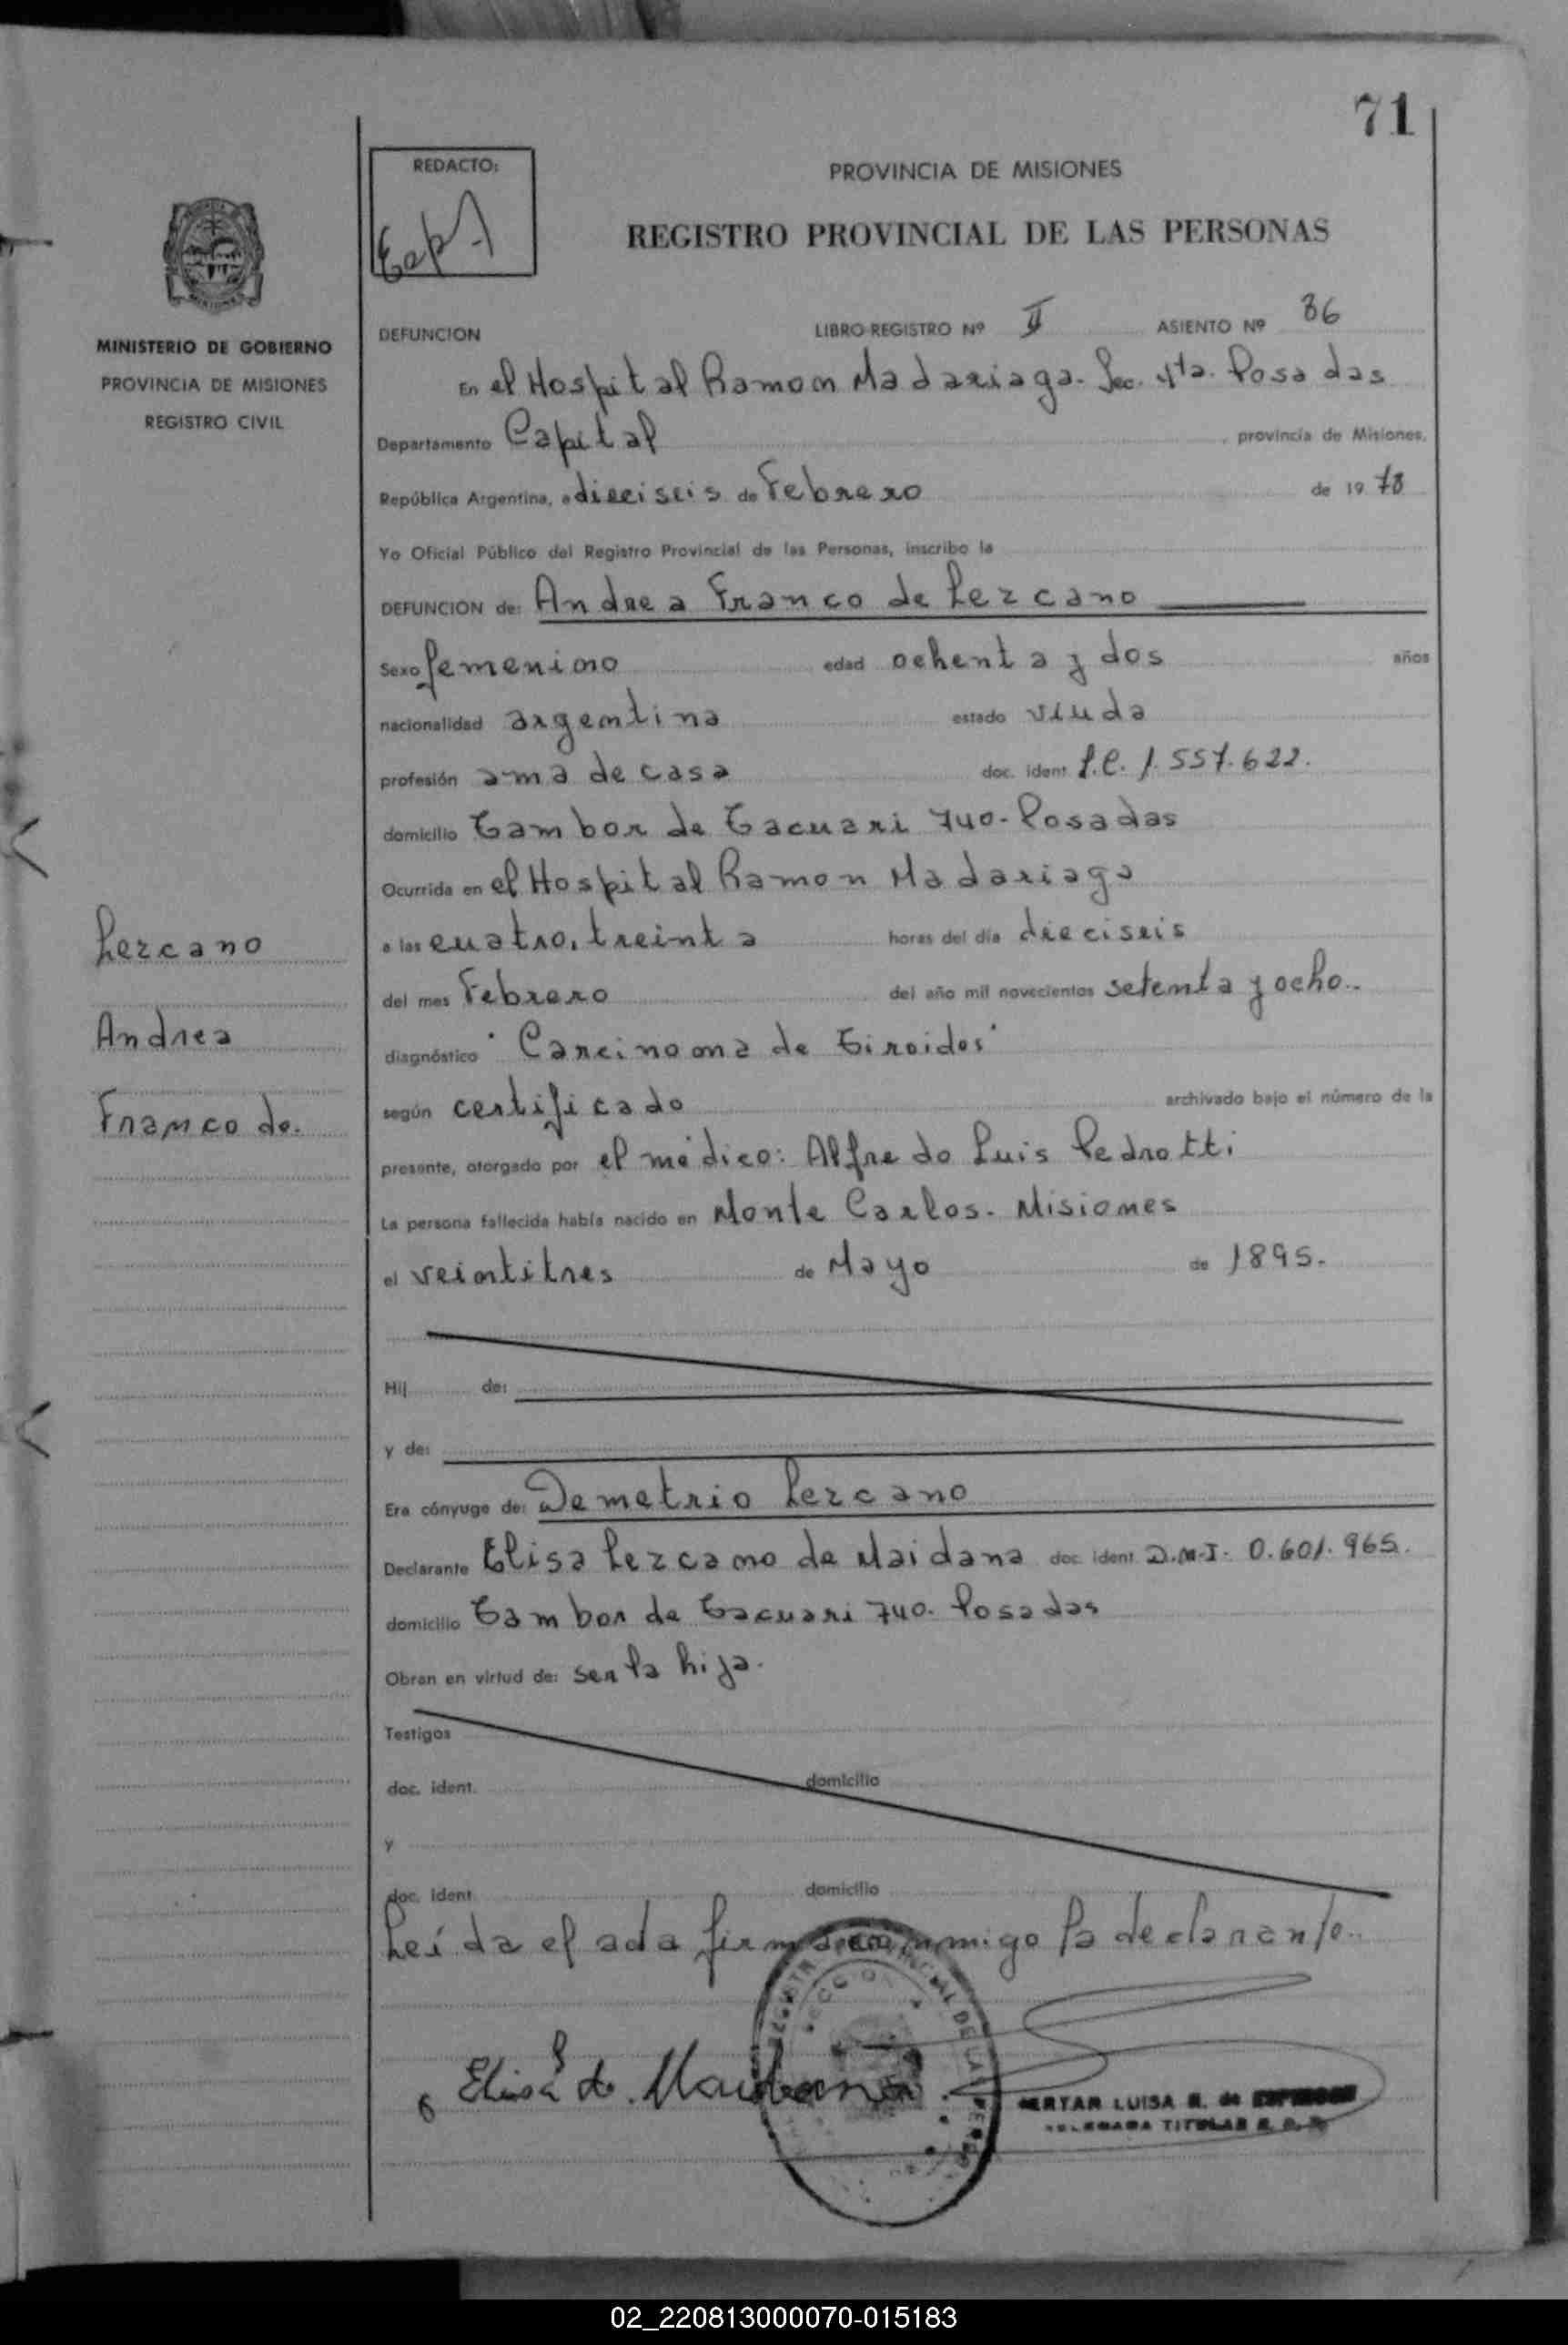 71
REDACTO:
PROVINCIA DE MISIONES
REGISTRO PROVINCIAL DE LAS PERSONAS
MINISTERIO DE GOBIERNO
PROVINCIA DE MISIONES
REGISTRO CIVIL
DEFUNCION LIBRO-REGISTRO Nº II ASIENTO Nº 86
En el Hospital Ramon Madariaga. Sec. 4ta. Posadas
Departamento Capital, provincia de Misiones,
República Argentina, a dieciseis de Febrero de 1978
Yo Oficial Público del Registro Provincial de las Personas, inscribo la
DEFUNCION de: Andrea Franco de Lezcano
Sexo femenino edad ochenta y dos años
nacionalidad argentina estado viuda
profesión ama de casa doc. ident. L.C. 1.557.622.
domicilio Tambor de Tacuari 740. Posadas
Ocurrida en el Hospital Ramon Madariaga
a las cuatro, treinta horas del día dieciseis
del mes Febrero del año mil novecientos setenta y ocho..
diagnóstico "Carcinoma de Tiroides"
según certificado archivado bajo el número de la
presente, otorgado por el médico: Alfredo Luis Pedrotti
La persona fallecida había nacido en Monte Carlos. Misiones
el veintitres de Mayo de 1895.
Hij de:
y de:
Era cónyuge de: Demetrio Lezcano
Declarante Elisa Lezcano de Maidana doc. ident. D.N.I. 0.601.965.
domicilio Tambor de Tacuari 740. Posadas
Obran en virtud de: ser la hija.
Testigos
doc. ident. domicilio
y
doc. ident. domicilio
Leída el acta firma conmigo la declarante..
Elisa L de Maidana
LUISA R. de
TITULAR R. P. P.
Lezcano
Andrea
Franco de.
02_220813000070-015183